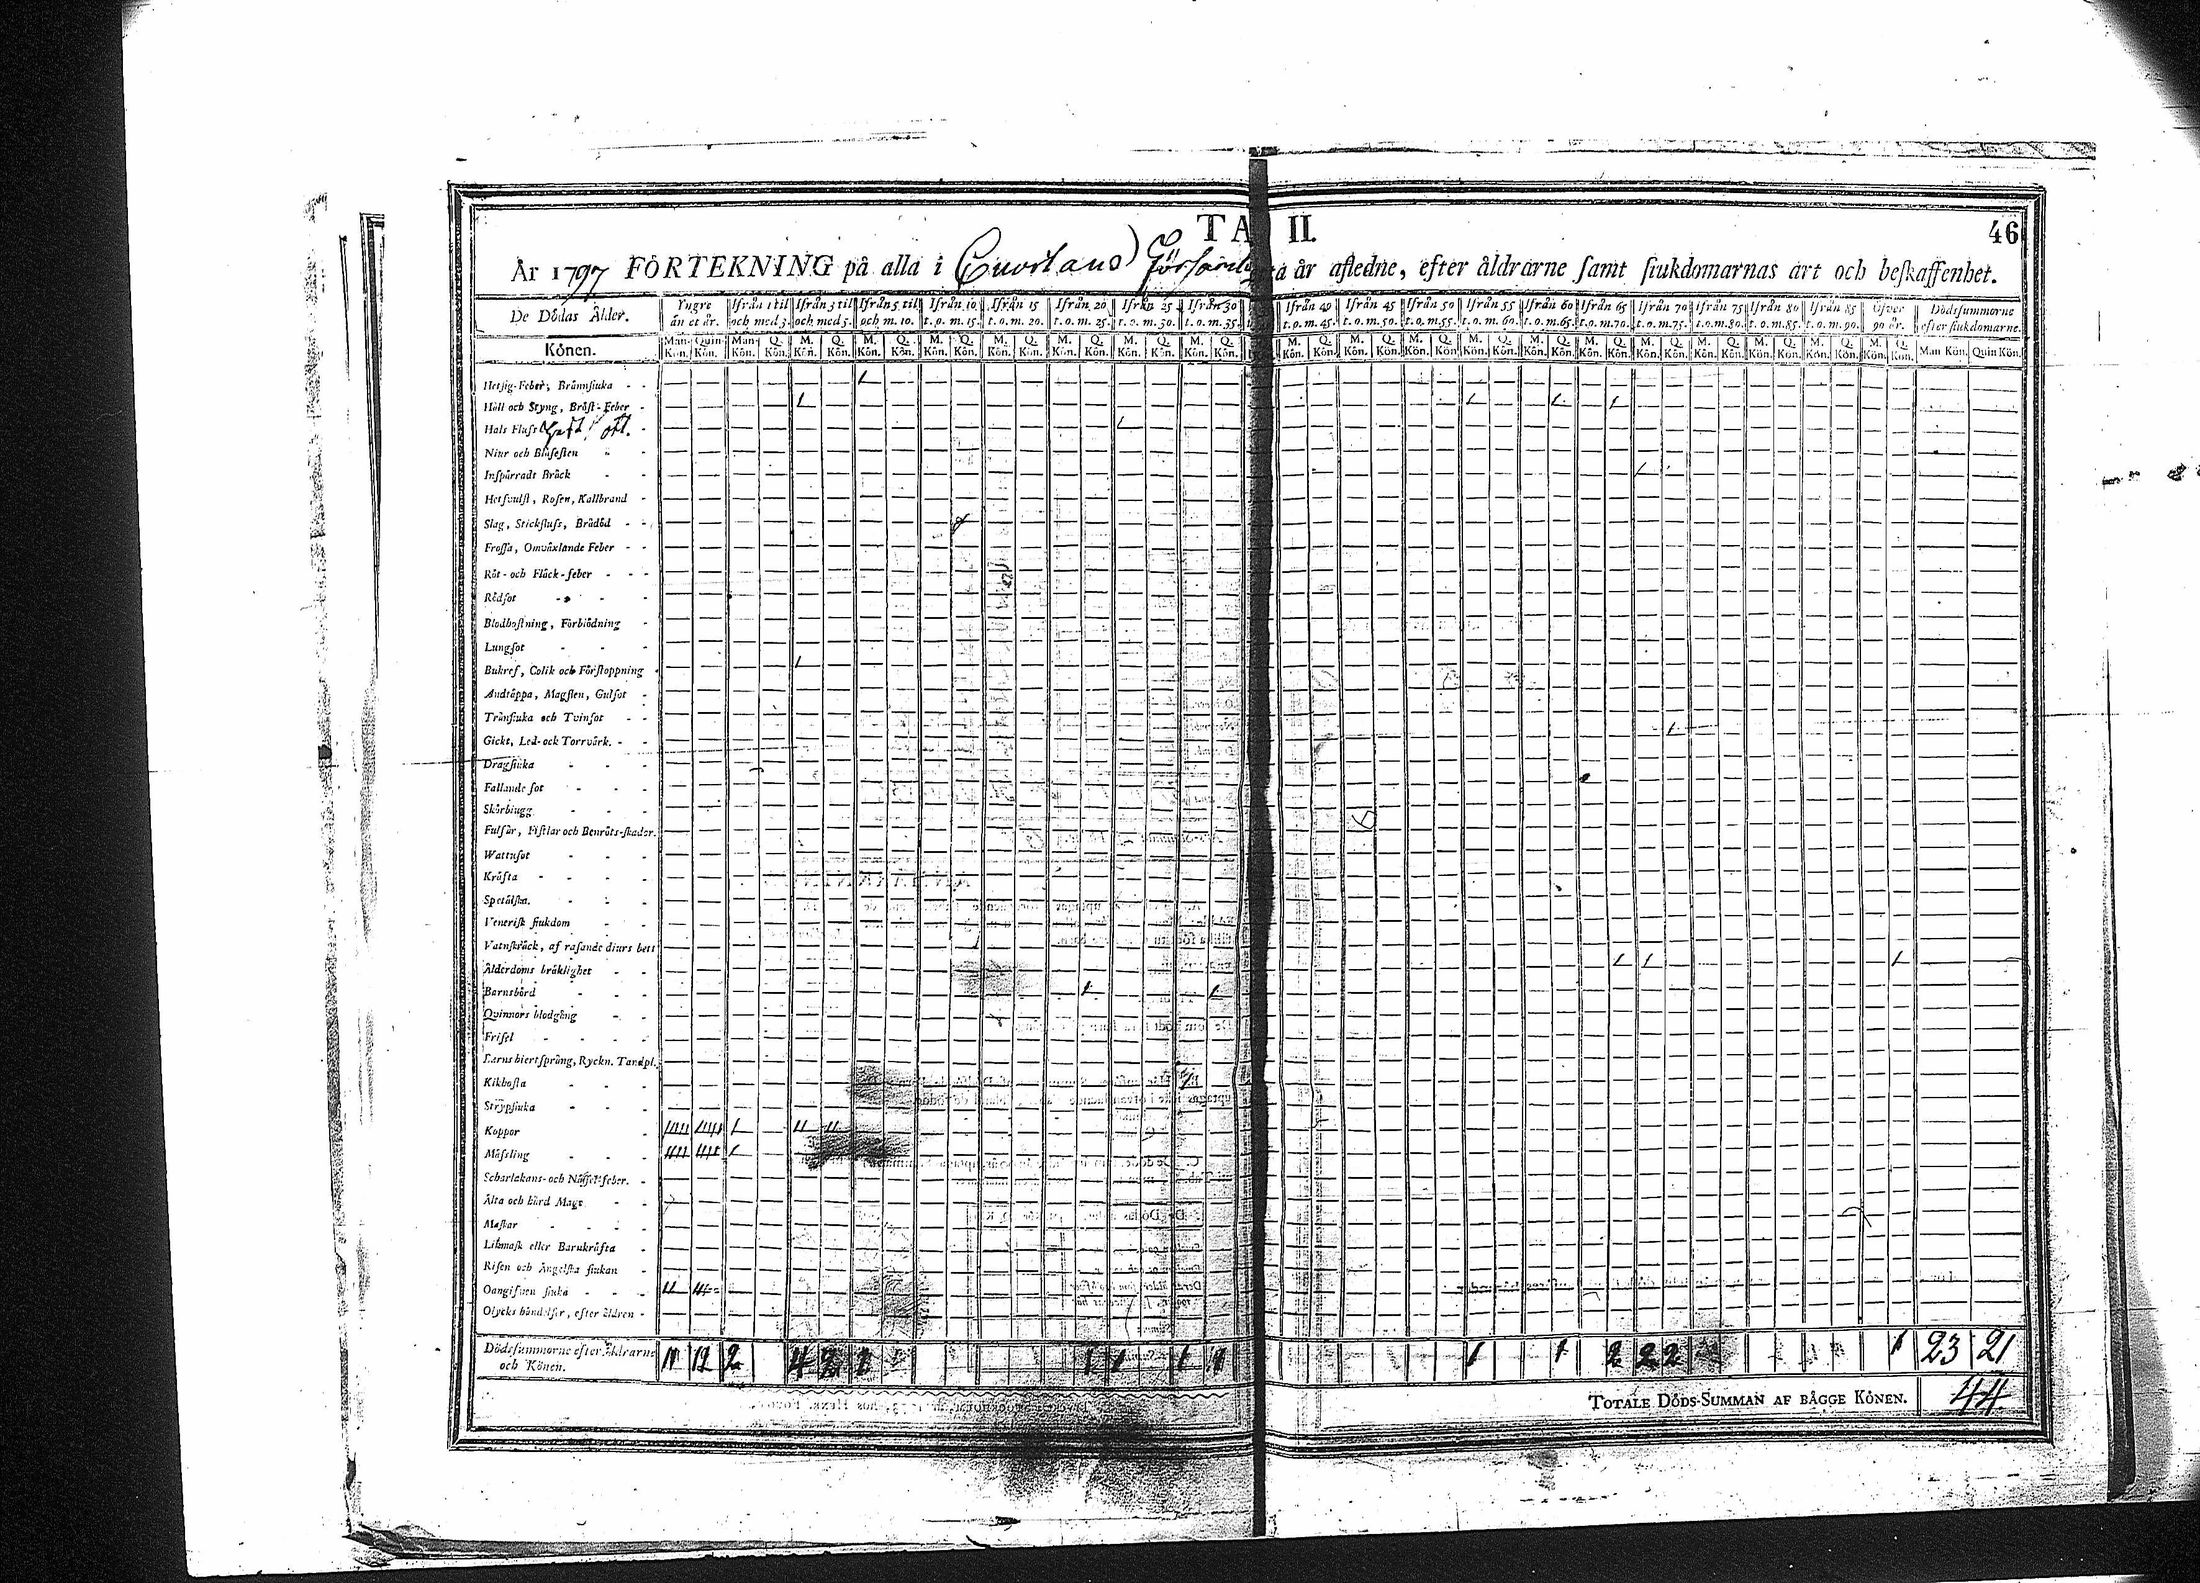 TA II.
46
År 1797 FÖRTEKNING på alla i Församling å år afledne, efter åldrarne samt siukdomarnas art och beskaffenhet.
De Dödas Ålder. Yngre än et år. Ifrån 1 til och med 3. Ifrån 3 til och med 5. Ifrån 5 til och m. 10. Ifrån 10 t. o. m. 15. Ifrån 15 t. o. m. 20. Ifrån 20 t. o. m. 25. Ifrån 25 t. o. m. 30. Ifrån 30 t. o. m. 35. Ifrån 40 t. o. m. 45. Ifrån 45 t. o. m. 50. Ifrån 50 t. o. m. 55. Ifrån 55 t. o. m. 60. Ifrån 60 t. o. m. 65. Ifrån 65 t. o. m. 70. Ifrån 70 t. o. m. 75. Ifrån 75 t. o. m. 80. Ifrån 80 t. o. m. 85. Ifrån 85 t. o. m. 90. Öfver 90 år. Dödssummorne efter siukdomarne.
Könen. Man-Kön. Quin-Kön. Man-Kön. Q. Kön. M. Kön. Q. Kön. M. Kön. Q. Kön. M. Kön. Q. Kön. M. Kön. Q. Kön. M. Kön. Q. Kön. M. Kön. Q. Kön. M. Kön. Q. Kön. M. Kön. Q. Kön. M. Kön. Q. Kön. M. Kön. Q. Kön. M. Kön. Q. Kön. M. Kön. Q. Kön. M. Kön. Q. Kön. M. Kön. Q. Kön. M. Kön. Q. Kön. M. Kön. Q. Kön. M. Kön. Q. Kön. M. Kön. Q. Kön. Man Kön. Quin Kön.
Hetsig-Feber, Brännsiuka 1
Håll och Styng, Bröst-Feber 1 1 1 1
Hals Fluss 1
Niur och Blåsesten
Inspärradt Bråck 1
Hetsvulst, Rosen, Kallbrand
Slag, Stickfluss, Brådöd
Frossa, Omväxlande Feber
Röt- och Fläck-feber
Rödsot
Blodhostning, Förblödning
Lungsot
Bukref, Colik och Förstoppning 1
Andtäppa, Magsten, Gulsot
Trånsiuka och Tvinsot
Gickt, Led- och Torrvärk. 1
Dragsiuka
Fallande sot
Skörbiugg
Fulsår, Fistlar och Benröts-skador.
Wattusot
Kräfta
Spetälska.
Venerisk siukdom
Vatuskräck, af rasande diurs bett
Ålderdoms bräklighet 1 1 1
Barnsbörd 1 1
Quinnors blodgång
Frisel
Barns hiertsprång, Ryckn. Tandpl.
Kikhosta
Strypsiuka
Koppor
Mässling
Scharlakans- och Nässel-feber.
Älta och hård Mage
Maskar
Likmask eller Barnkräfta
Risen och Ängelska siukan
Oangifven siuka
Olycks händelser, efter åldren
Dödssummorne efter åldrarne och Könen. 11 12 2 4 2 1 1 1 1 1 1 1 2 2 2 1 23 21
TOTALE DÖDS-SUMMAN AF BÄGGE KÖNEN. 44